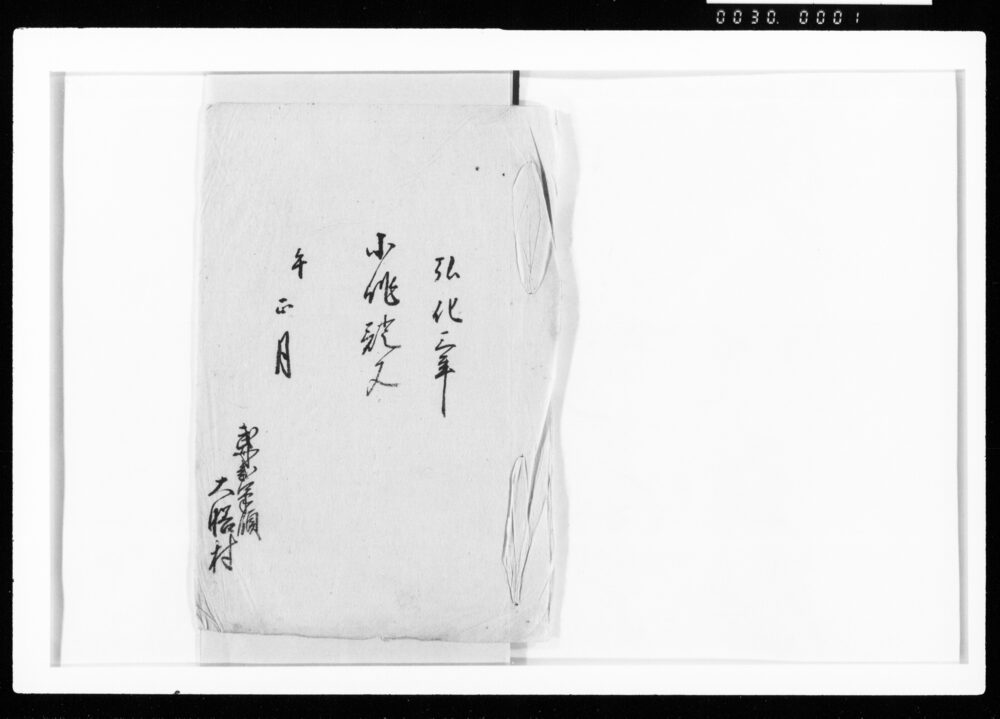 0030. 0001
弘化三年
小作證文
午
正月
領
大
村